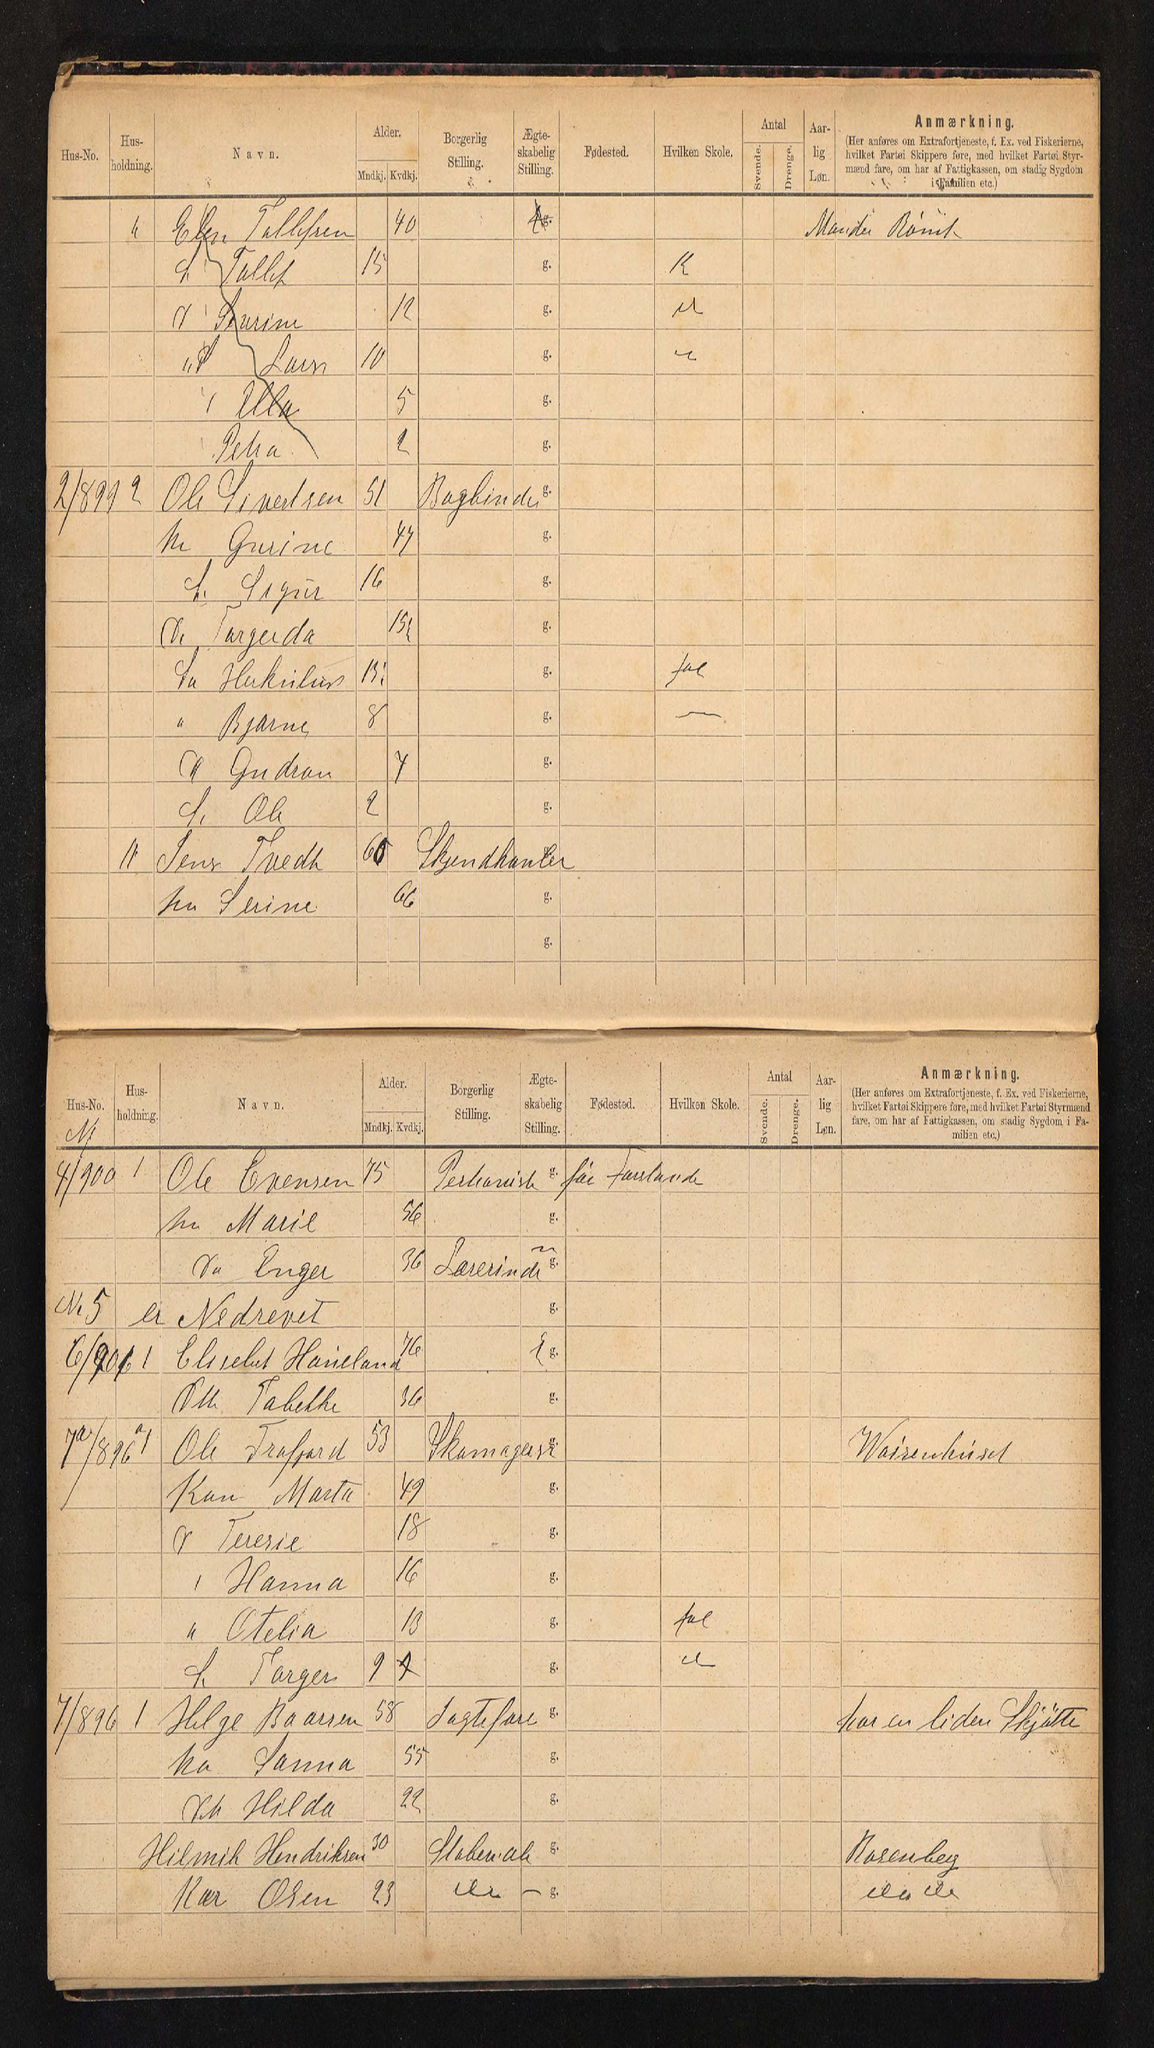 Hus-No. Hus-holdning. Navn. Alder. Mndkj. Kvdkj. Borgerlig Stilling. Ægte-skabelig Stilling. Fødested. Hvilken Skole. Antal Svende. Drenge. Aar-lig Løn. Anmærkning.
(Her anføres om Extrafortjeneste, f. Ex. ved Fiskerierne, hvilket Fartøi Skippere føre, med hvilket Fartøi Styr-mænd fare, om har af Fattigkassen, om stadig Sygdom i Familien etc.)
" Elen Tollefsen 40 g.
S. Tollef 15 g.
D Severine 12 g.
" S Lars 10 g.
" Ella 5 g.
Petra 2 g.
2/899 2 Ole Sivertsen 51 Bogbinder g.
Ko Gurine 47 g.
S. Sigur 16 g.
D. Torgerda 15 g.
Sø Herkulus 13 g. fol
" Bjarne 8 g. —
D Gudrun 7 g.
S. Ole 2 g.
" Jens Tvedt 60 Skindhanler
Ko Serine 66 g.
g.
Hus-No. Hus-holdning. Navn. Alder. Mndkj. Kvdkj. Borgerlig Stilling. Ægte-skabelig Stilling. Fødested. Hvilken Skole. Antal Svende. Drenge. Aar-lig Løn. Anmærkning.
(Her anføres om Extrafortjeneste, f. Ex. ved Fiskerierne, hvilket Fartøi Skippere føre, med hvilket Fartøi Styrmænd fare, om har af Fattigkassen, om stadig Sygdom i Fa-milien etc.)
4/900 1 Ole Evensen 75 g.
Ko Marie 56 g.
Da Enger 36 Lærerinde g.
No 5 er Nedrevet g.
6/901 1 Elisebet Haueland 76 E g.
Dtt Tabethe 36 g.
7a/896 a 1 Ole Frafjord 53 Skomagersv g. Waisenhuset
Kon Marta 49 g.
D Terese 18 g.
" Hanna 16 g.
" Otelia 13 g. fol
S. Torger 9 g.
7/896 1 Helge Baarsen 58 Jagtefører g. har en liden Skjøtte
Ko Sanna 55 g.
Dtt Hilda 22 g.
Hilmik Hendriksen 30 g. Rosenberg
Kar Olsen 23 do – g. do do